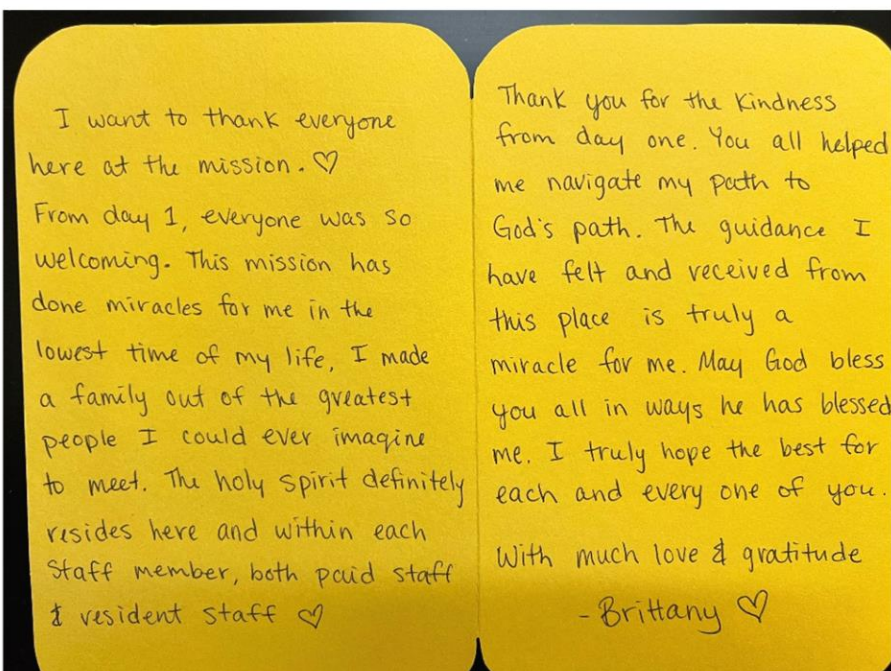 I want to thank everyone
here at the mission. ♡
From day 1, everyone was so
welcoming. This mission has
done miracles for me in the
lowest time of my life, I made
a family out of the greatest
people I could ever imagine
to meet. The holy spirit definitely
resides here and within each
Staff member, both paid staff
& resident staff ♡
Thank you for the kindness
from day one. You all helped
me navigate my path to
God's path. The guidance I
have felt and received from
this place is truly a
miracle for me. May God bless
you all in ways he has blessed
me. I truly hope the best for
each and every one of you.
With much love & gratitude
- Brittany ♡